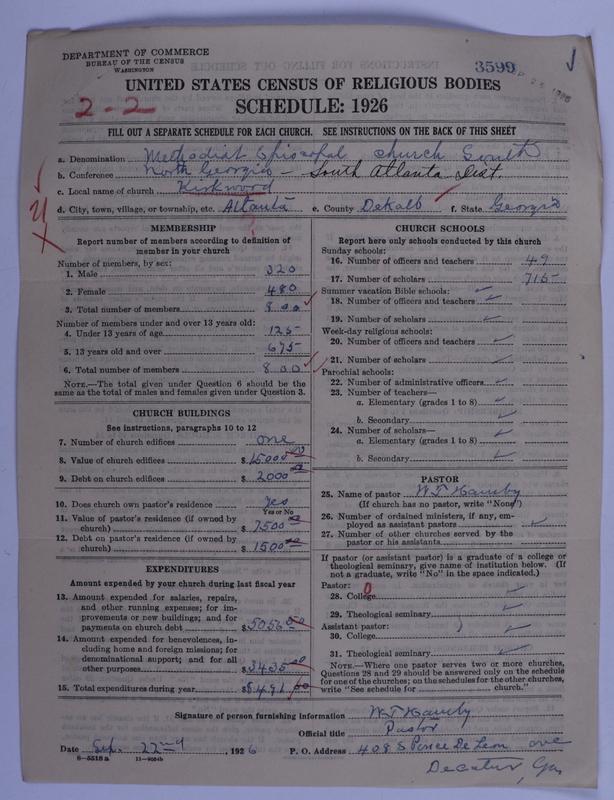 DEPARTMENT OF COMMERCE
BUREAU OF THE CENSUS
WASHINGTON
3599
UNITED STATES CENSUS OF RELIGIOUS BODIES
2-2
SCHEDULE: 1926
FILL OUT A SEPARATE SCHEDULE FOR EACH CHURCH. SEE INSTRUCTIONS ON THE BACK OF THIS SHEET
a. Denomination Methodist Episcopal church South
b. Conference North Georgia - South Atlanta Dist.
c. Local name of church Kirkwood
d. City, town, village, or township, etc. Atlanta e. County DeKalb f. State Georgia
MEMBERSHIP
Report number of members according to definition of
member in your church
Number of members, by sex:
1. Male 320
2. Female 480
3. Total number of members 800
Number of members under and over 13 years old:
4. Under 13 years of age 125
5. 13 years old and over 675
6. Total number of members 800
NOTE.—The total given under Question 6 should be the
same as the total of males and females given under Question 3.
CHURCH BUILDINGS
See instructions, paragraphs 10 to 12
7. Number of church edifices one
8. Value of church edifices $15000 00
9. Debt on church edifices $2000 00
10. Does church own pastor's residence Yes
Yes or No
11. Value of pastor's residence (if owned by
church) $7500 00
12. Debt on pastor's residence (if owned by
church) $1500 00
EXPENDITURES
Amount expended by your church during last fiscal year
13. Amount expended for salaries, repairs,
and other running expenses; for im-
provements or new buildings; and for
payments on church debt $5056 00
14. Amount expended for benevolences, in-
cluding home and foreign missions; for
denominational support; and for all
other purposes $3435 00
15. Total expenditures during year $8491 00
CHURCH SCHOOLS
Report here only schools conducted by this church
Sunday schools:
16. Number of officers and teachers 49
17. Number of scholars 715
Summer vacation Bible schools:
18. Number of officers and teachers
19. Number of scholars
Week-day religious schools:
20. Number of officers and teachers
21. Number of scholars
Parochial schools:
22. Number of administrative officers
23. Number of teachers—
a. Elementary (grades 1 to 8)
b. Secondary
24. Number of scholars—
a. Elementary (grades 1 to 8)
b. Secondary
PASTOR
25. Name of pastor W T Hamby
(If church has no pastor, write "None")
26. Number of ordained ministers, if any, em-
ployed as assistant pastors
27. Number of other churches served by the
pastor or his assistants
If pastor (or assistant pastor) is a graduate of a college or
theological seminary, give name of institution below. (If
not a graduate, write "No" in the space indicated.)
Pastor: 0
28. College
29. Theological seminary
Assistant pastor:
30. College
31. Theological seminary
NOTE.—Where one pastor serves two or more churches,
Questions 28 and 29 should be answered only on the schedule
for one of the churches; on the schedules for the other churches,
write "See schedule for church."
Signature of person furnishing information W T Hamby
Official title Pastor
Date Sep. 22nd, 1926 P. O. Address 408 S Ponce De Leon ave
8-5518a 11-9054b
Decatur, Ga